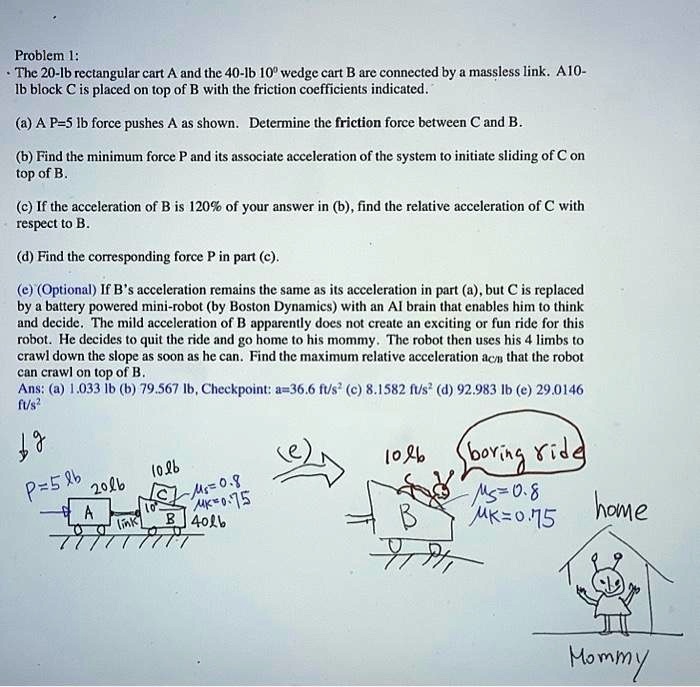 Problem 1:
· The 20-lb rectangular cart A and the 40-lb 10° wedge cart B are connected by a massless link. A10-
lb block C is placed on top of B with the friction coefficients indicated.
(a) A P=5 lb force pushes A as shown. Determine the friction force between C and B.
(b) Find the minimum force P and its associate acceleration of the system to initiate sliding of C on
top of B.
(c) If the acceleration of B is 120% of your answer in (b), find the relative acceleration of C with
respect to B.
(d) Find the corresponding force P in part (c).
(e) (Optional) If B's acceleration remains the same as its acceleration in part (a), but C is replaced
by a battery powered mini-robot (by Boston Dynamics) with an AI brain that enables him to think
and decide. The mild acceleration of B apparently does not create an exciting or fun ride for this
robot. He decides to quit the ride and go home to his mommy. The robot then uses his 4 limbs to
crawl down the slope as soon as he can. Find the maximum relative acceleration aC/B that the robot
can crawl on top of B.
Ans: (a) 1.033 lb (b) 79.567 lb, Checkpoint: a=36.6 ft/s² (c) 8.1582 ft/s² (d) 92.983 lb (e) 29.0146
ft/s²
g
P=5 lb
20lb
A
link
10lb
C
10°
B
40lb
μs=0.8
μK=0.75
(e)
10lb
boring ride
B
μs=0.8
μK=0.75
home
Mommy